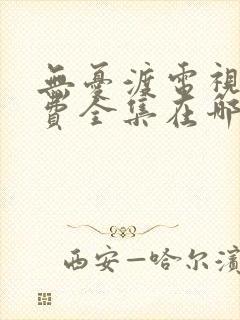 無憂渡電視
費全集在哪
西安—哈尔濱